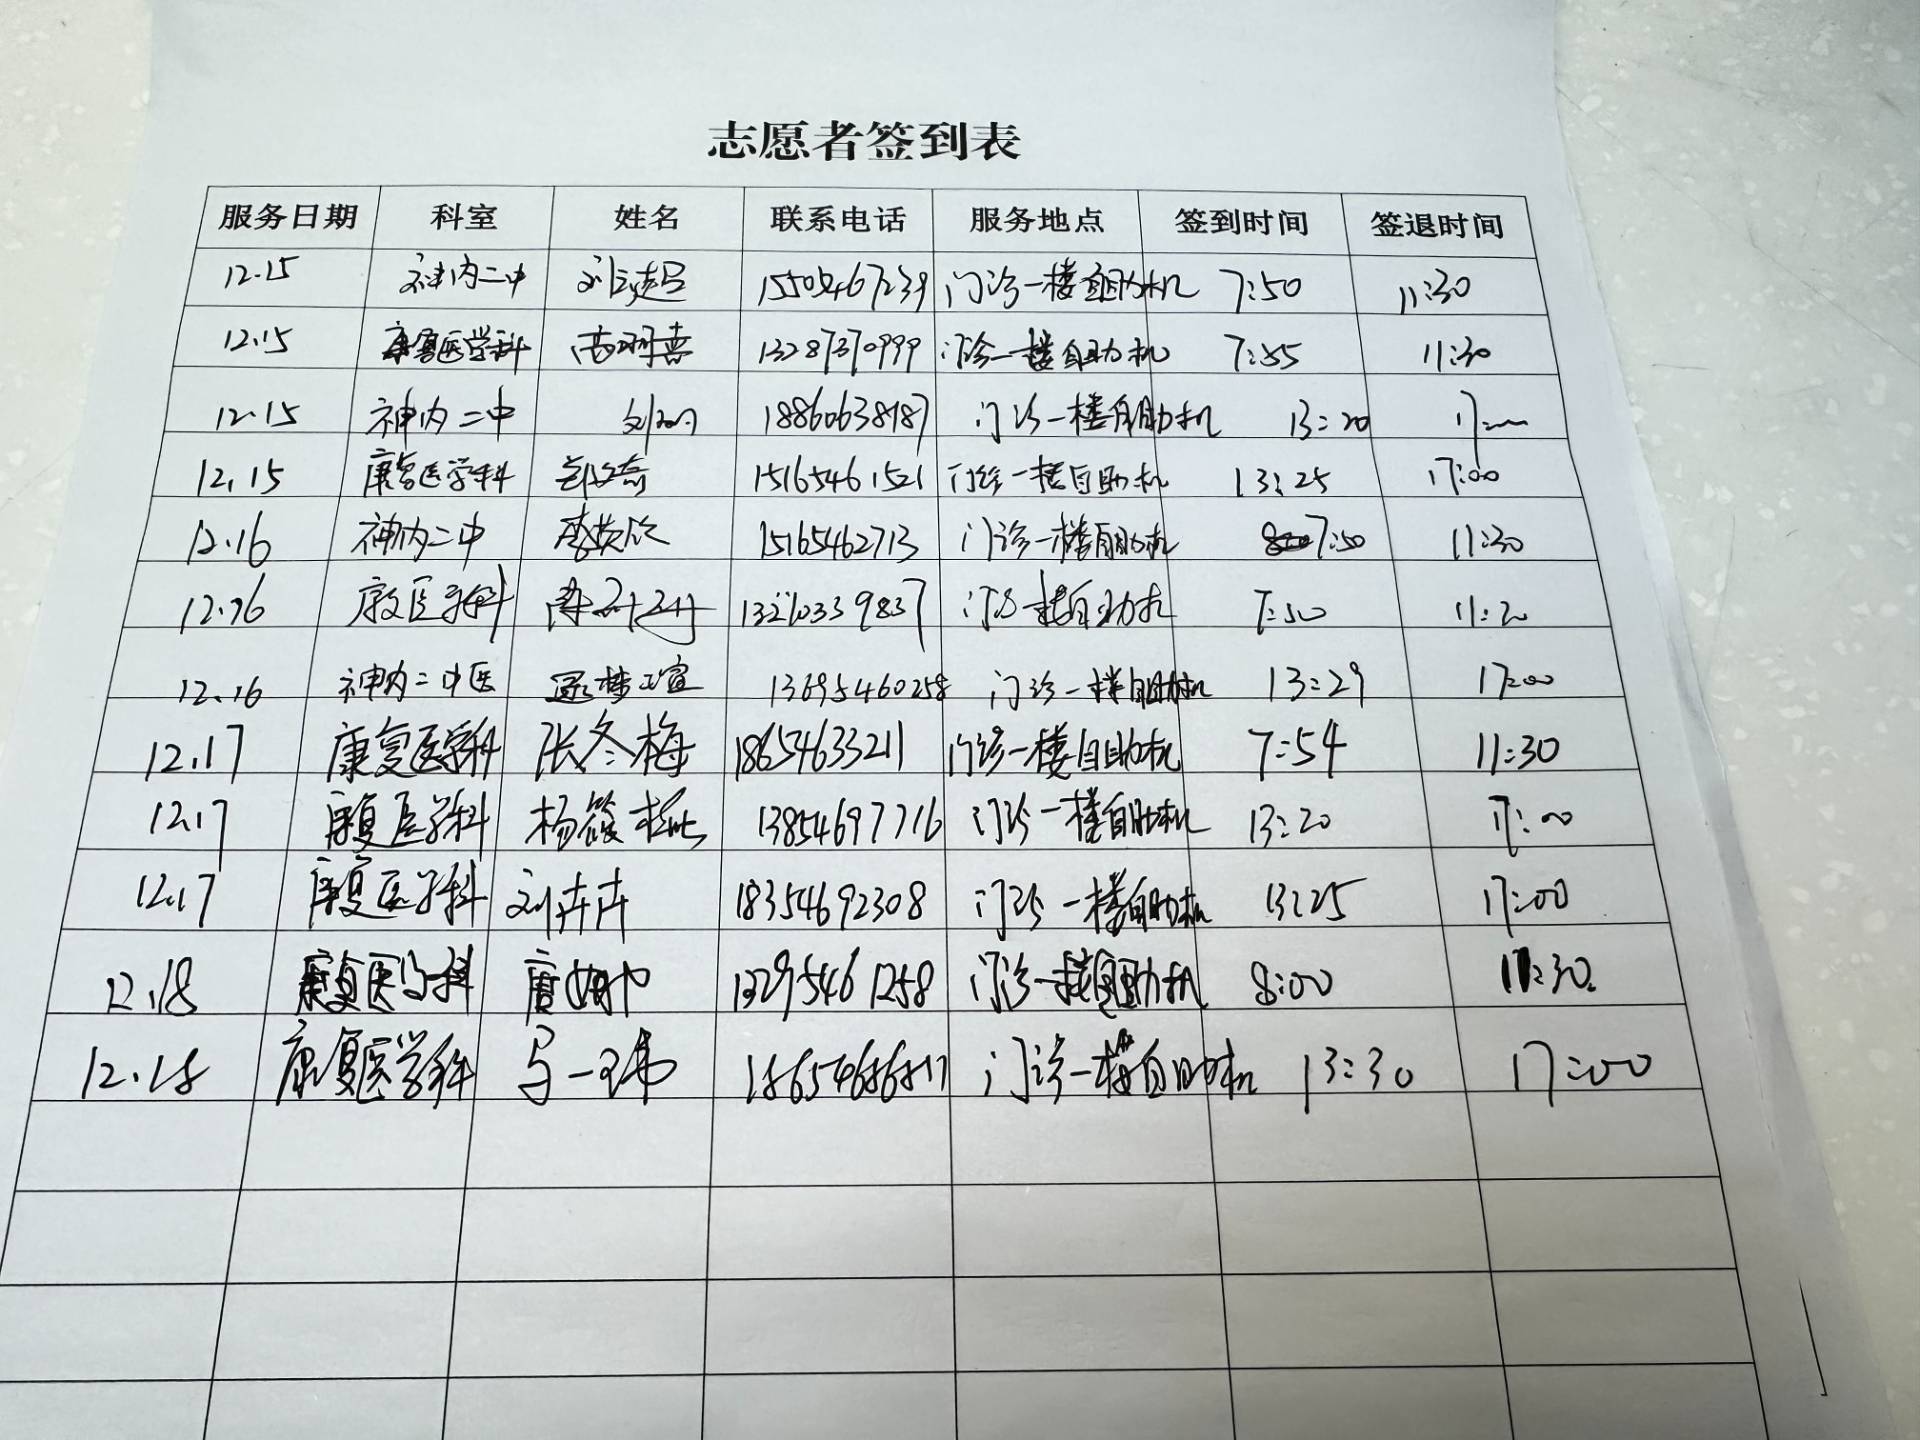 志愿者签到表
服务日期 科室 姓名 联系电话 服务地点 签到时间 签退时间
12.15 神内二中 15505467239 门诊一楼自助机 7:50 11:30
12.15 康复医学科 13287370999 门诊一楼自助机 7:55 11:30
12.15 神内二中 18860638187 门诊一楼自助机 13:20 17:00
12.15 康复医学科 15165461521 门诊一楼自助机 13:25 17:00
12.16 神内二中 李英欣 15165462713 门诊一楼自助机 7:50 11:30
12.16 康复医学科 门诊一楼自助机 7:50 11:20
12.16 神内二中医 13695460258 门诊一楼自助机 13:29 17:00
12.17 康复医学科 张冬梅 18654633211 门诊一楼自助机 7:54 11:30
12.17 康复医学科 杨筱 13854697716 门诊一楼自助机 13:20 17:00
12.17 康复医学科 刘卉卉 18354692308 门诊一楼自助机 13:25 17:00
12.18 康复医学科 13295461258 门诊一楼自助机 8:00 11:30
12.18 康复医学科 门诊一楼自助机 13:30 17:00